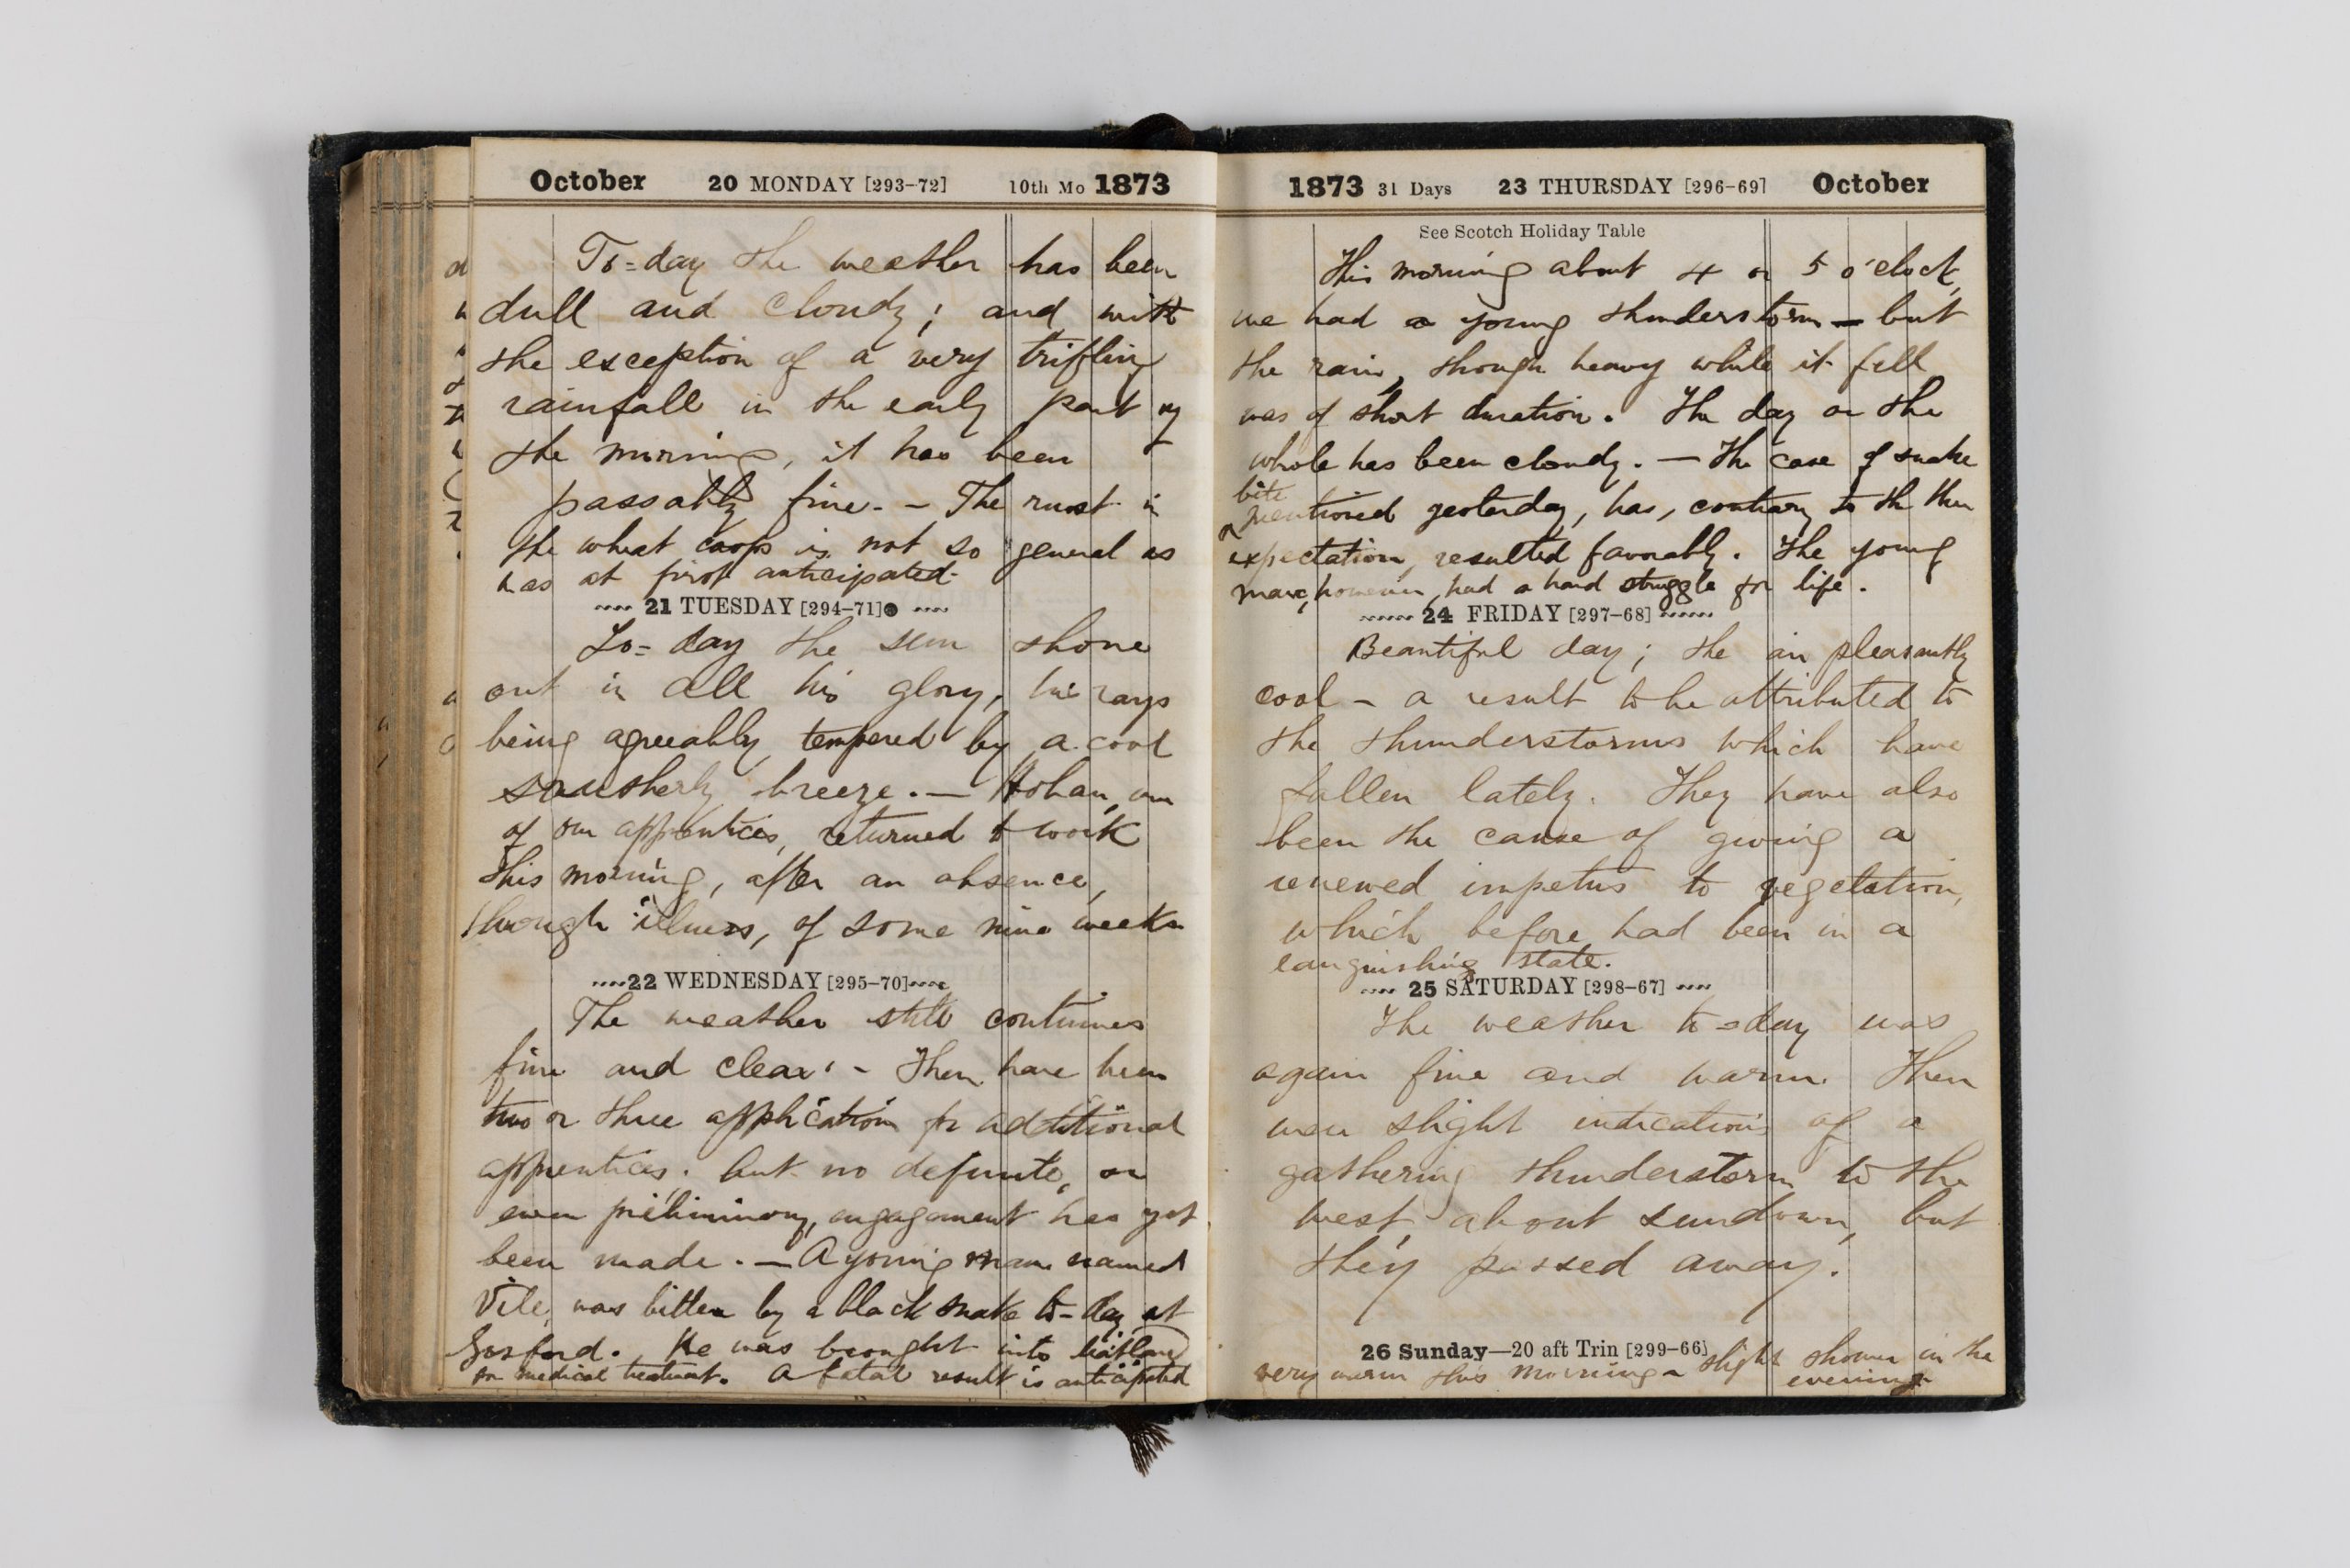 October 20 MONDAY [293-72] 10th Mo 1873
To=day the weather has been
dull and cloudy; and with
the exception of a very trifling
rainfall in the early part of
the morning, it has been
passably fine. - The rust in
the wheat crops is not so general as
was at first anticipated.
21 TUESDAY [294-71]
To=day the sun shone
out in all his glory, his rays
being agreeably tempered by a cool
southerly breeze. — Hohan, one
of our apprentices, returned to work
this morning, after an absence,
through illness, of some nine weeks
22 WEDNESDAY [295-70]
The weather still continues
fine and clear. - There have been
two or three applications for additional
apprentices; but no definite, or
even preliminary, engagement has yet
been made. — A young man named
Vile, was bitten by a black snake to-day at
Gosford. He was brought into
for medical treatment. A fatal result is anticipated
1873 31 Days 23 THURSDAY [296-69] October
See Scotch Holiday Table
This morning about 4 or 5 o'clock,
we had a young thunderstorm — but
the rain, though heavy while it fell
was of short duration. The day on the
whole has been cloudy. — The case of snake
bite
mentioned yesterday, has, contrary to the then
expectation, resulted favorably. The young
man, however, had a hard struggle for life.
24 FRIDAY [297-68]
Beautiful day; the air pleasantly
cool - a result to be attributed to
the thunderstorms which have
fallen lately. They have also
been the cause of giving a
renewed impetus to vegetation,
which before had been in a
languishing state.
25 SATURDAY [298-67]
The weather to=day was
again fine and warm. There
were slight indications of a
gathering thunderstorm to the
west, about sundown, but
they passed away.
26 Sunday—20 aft Trin [299-66]
very warm this morning - slight shower in the
evening